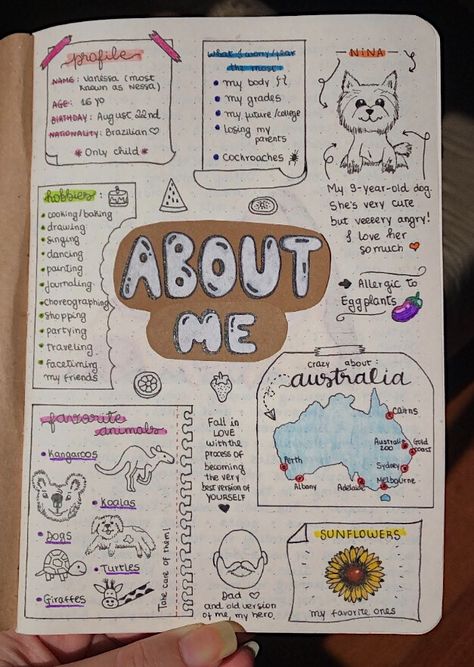 profile
NAME: Vanessa (most
known as Nessa)
AGE: 16 yo
BIRTHDAY: August 22nd.
NATIONALITY: Brazilian
Only child
what I worry/fear
the most
my body
my grades
my future/college
losing my
parents
cockroaches
NINA
My 9-year-old dog.
She's very cute
but veeeery angry!
I love her
so much
Allergic to
Eggplants
hobbies:
cooking/baking
drawing
singing
dancing
painting
journaling
choreographing
shopping
partying
traveling
facetiming
my friends
ABOUT
ME
crazy about:
australia
Cairns
Australia
zoo
Gold
coast
Perth
Sydney
Albany
Adelaide
Melbourne
favorite
animals
Kangaroos
Koalas
Dogs
Turtles
Giraffes
Take care of them!
Fall in
LOVE
with the
process of
becoming
the very
best version of
YOURSELF
Dad
and old version
of me, my hero.
SUNFLOWERS
my favorite ones